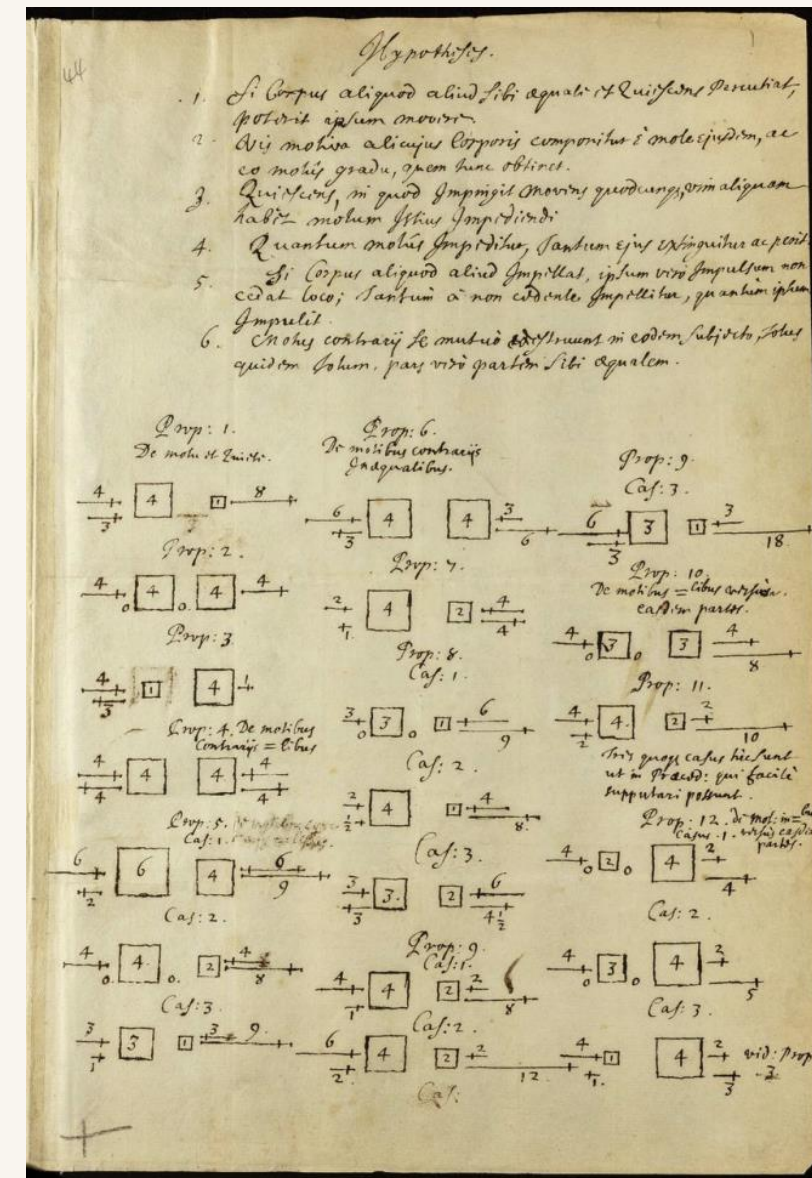 44
Hypotheses.
1. Si Corpus aliquod aliud sibi æquale et Quiescens Percutiat,
poterit ipsum movere.
2. Vis motiva alicujus Corporis componitur è mole ejusdem, ac
eo motûs gradu, quem tunc obtinet.
3. Quiescens, in quod Impingit movens quodcunqꝫ, vim aliquam
habet motum Istius Impediendi
4. Quantum motûs Impeditur, Tantum ejus extinguitur ac perit.
5. Si Corpus aliquod aliud Impellat, ipsum verò Impulsum non
cedat loco; Tantum à non cedente Impellitur, quantum ipsum
Impulit.
6. Motus contrarij se mutuò destruunt in eodem subjecto, Totus
quidem Totum, pars verò partem sibi æqualem.
Prop: 1.
De motu et Quiete.
4 3 4 1 8
Prop: 2.
4 0 4 0. 4 4
Prop: 3
4 3 1 4 1
Prop: 4. De motibus
Contrarijs = libus
4 4 4 4 4 4
Prop: 5.
Cas: 1.
6 2 6 4 6 9
Cas: 2.
4 0 4 0. 2 4 8
Cas: 3
3 1 3 1 3 9.
Prop: 6.
De motibus contrarijs
Inæqualibus.
6 3 4 4 3 6
Prop: 7.
2 1. 4 2 4 4
Prop: 8.
Cas: 1.
3 0 3 0 1 6 9
Cas: 2.
2 1/2 4 1 4 8.
Cas: 3.
3 3 3. 2 6 4 1/2
Prop: 9.
Cas: 1.
4 1 4 2 2 8
Cas: 2.
6 2 4 2 2 12
Cas:
Prop: 9
Cas: 3.
6 3 3 1 3 18
Prop: 10
De motibus = libus versùs
easdem partes.
4 0 3 0 3 4 8
Prop: 11.
4 2 4. 2 2 10
Tres quoqꝫ casus hic sunt
ut in Præced: qui facilè
supputari possunt.
Prop: 12. de mot: in=bus
Casus. 1. versùs easdem
partes.
4 0 2 0 4 2 4
Cas: 2.
4 0 3 0 4 2 5
Cas: 3.
4 1. 1 4 2 3 vid: Prop
3